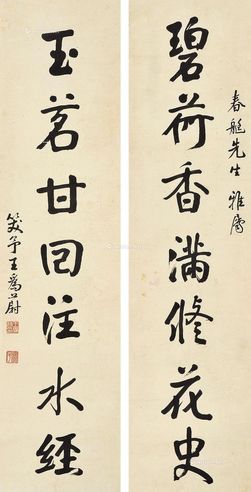 春艇先生雅属
碧荷香满修花史
玉茗甘回注水经
笑予王为蔚